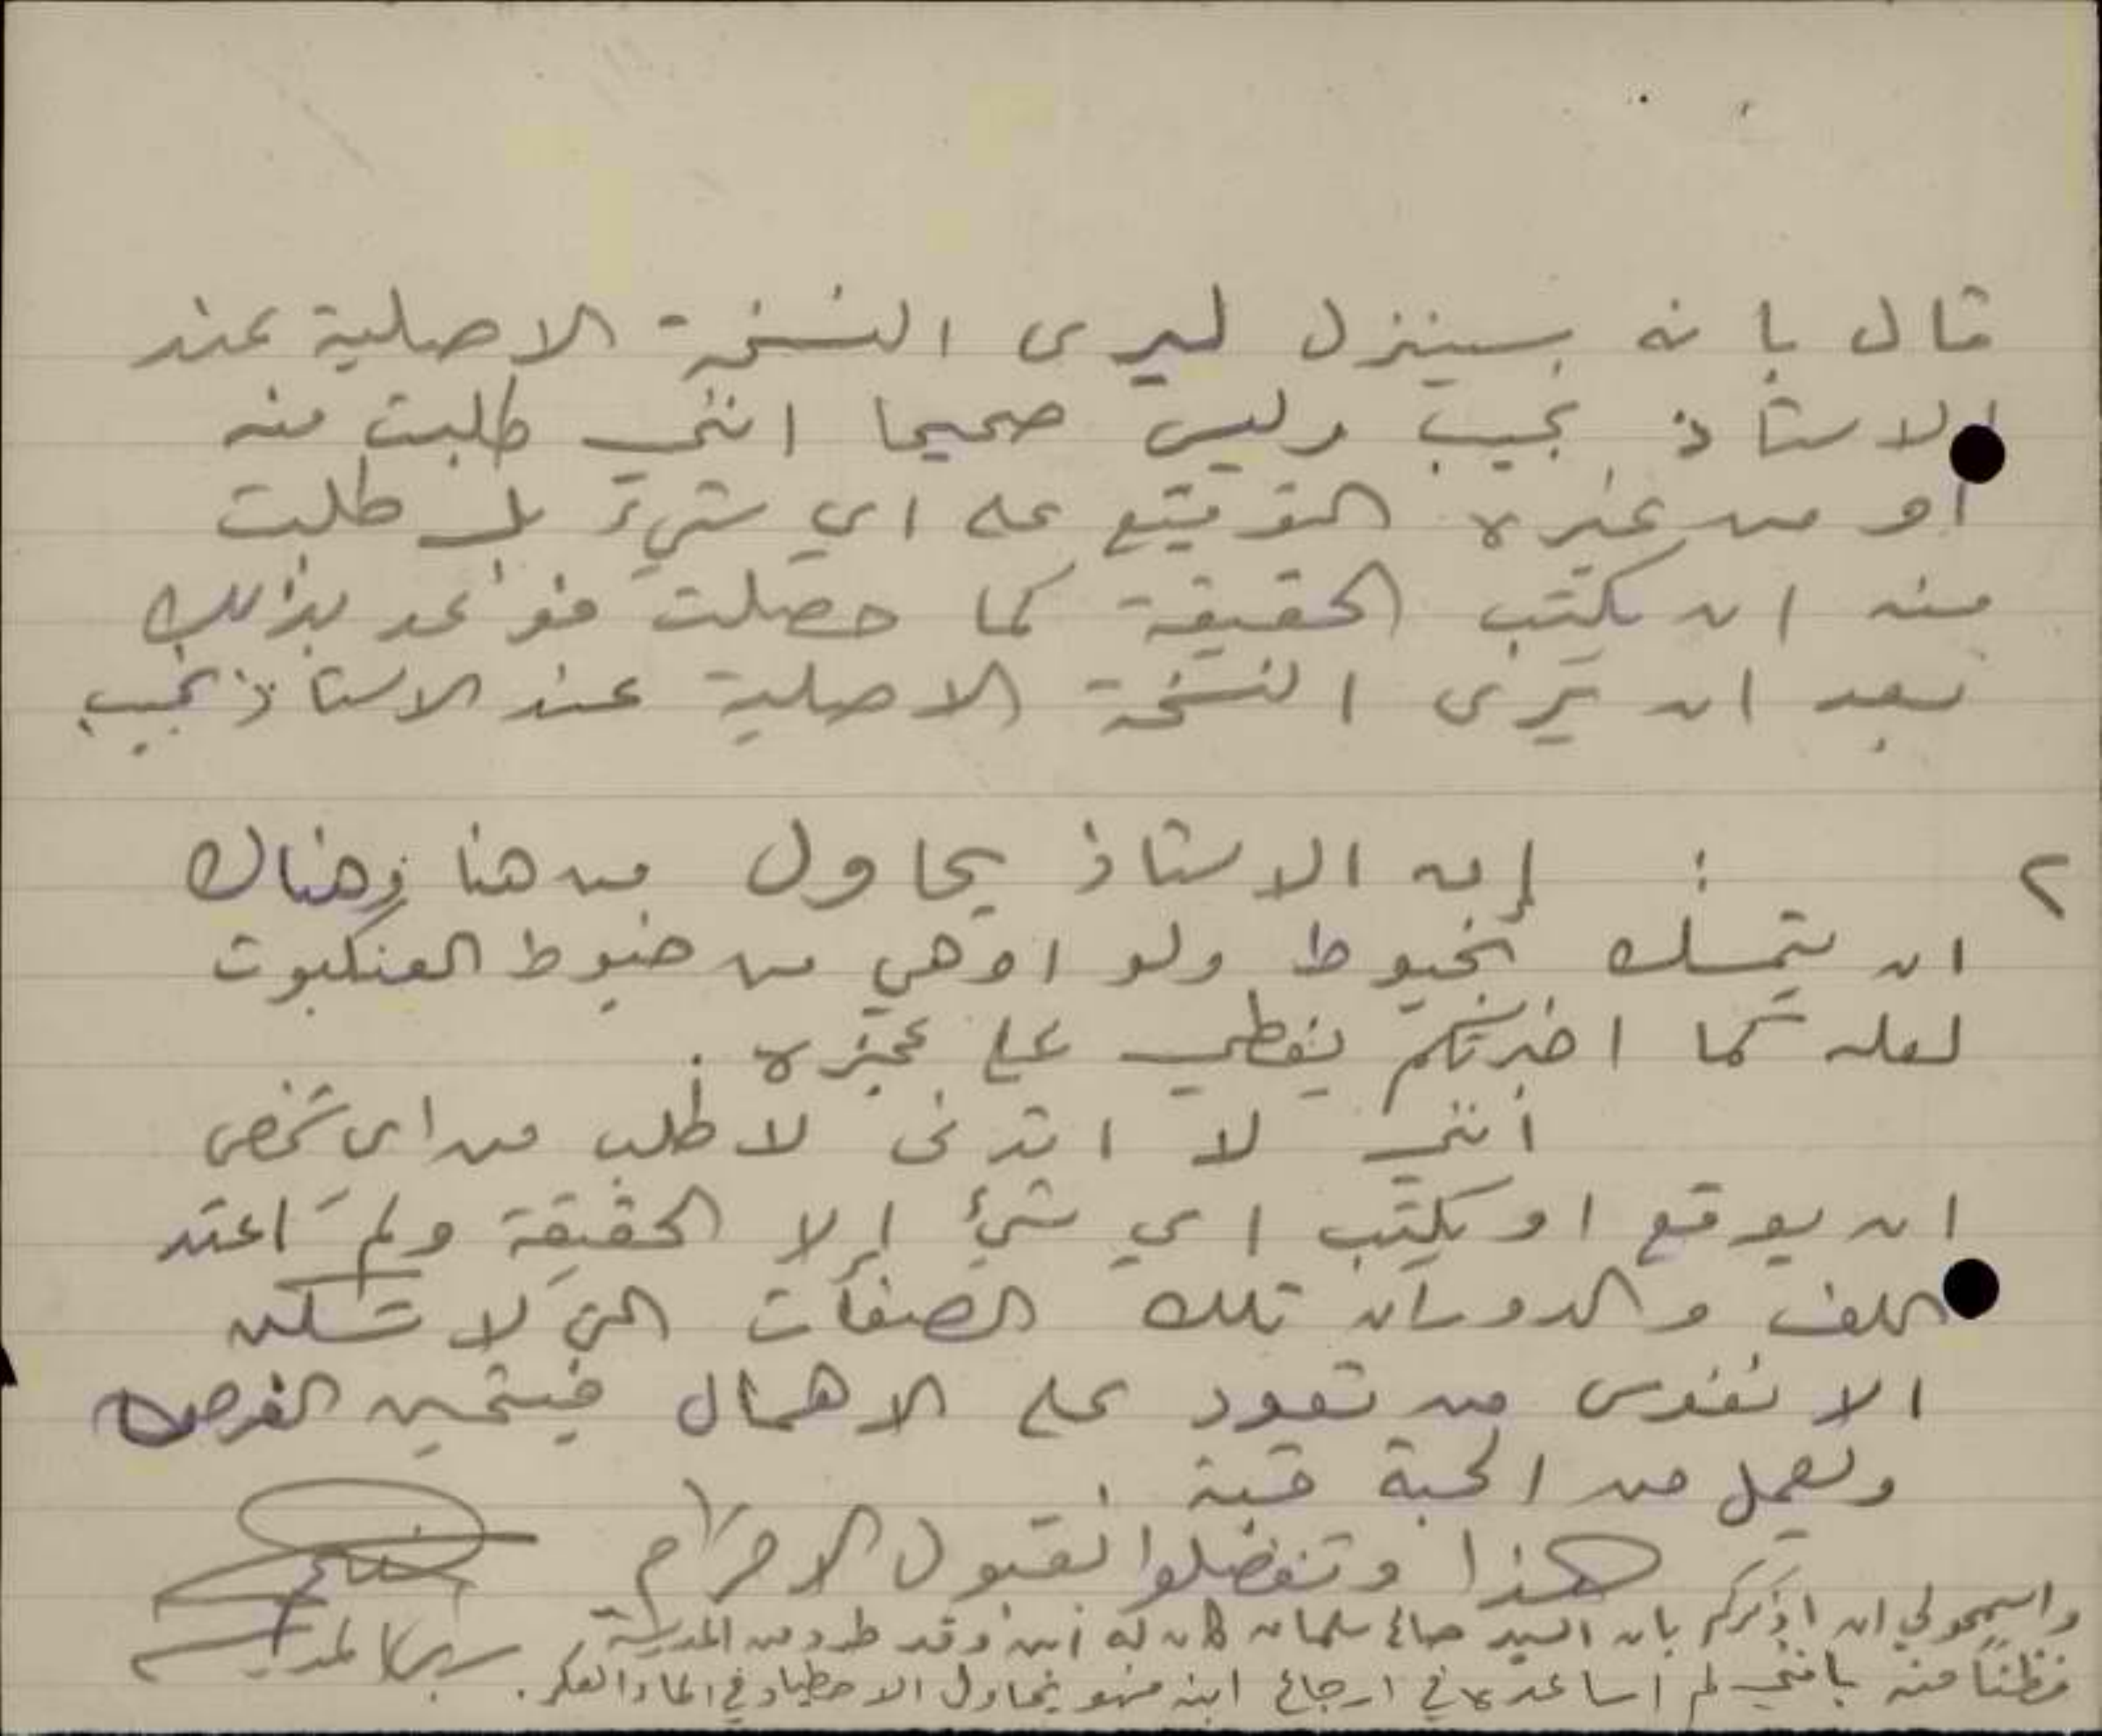 قال بانه سينزل ليرى النسخة الاصلية عند
الاستاذ نجيب وليس صحيحا انني طلبت منه
أو من غيره التوقيع على اي شيء بل طلبت
منه ان يكتب الحقيقة كما حصلت فواعد بذالك
بعد ان يرى النسخة الاصلية عند الاستاذ نجيب
٢ : إن الاستاذ يحاول من هنا وهناك
ان يتمسك بخيوط ولو اوهى من خيوط العنكبوت
لعله كما اخبرتكم يغطي على عجزه .
انني لا اتدنى لاطلب من اي شخص
ان يوقع او يكتب اي شيء إلا الحقيقة ولم اعتد
اللف والدوران تلك الصفات التي لا تسكن
الا نفوس من تعود على الاهمال فيتحين الفرص
ويعمل من الحبة قبة .
هذا وتفضلوا بقبول الاحترام
واسمحولي ان اذكركم بان السيد صالح سلمان كان له ابن وقد طرد من المدرسة
فظناً منه بانني لم اساعده في ارجاع ابنه فهو يحاول الاصطياد في الماء العكر .